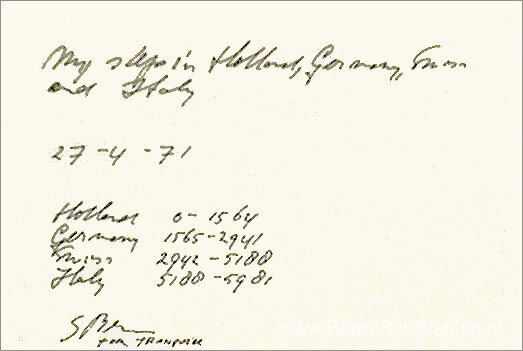 My steps in Holland, Germany, Swiss
and Italy
27-4-71
Holland 0-1564
Germany 1565-2941
Swiss 2942-5188
Italy 5188-5981
www.ReproSchilderijen.nl